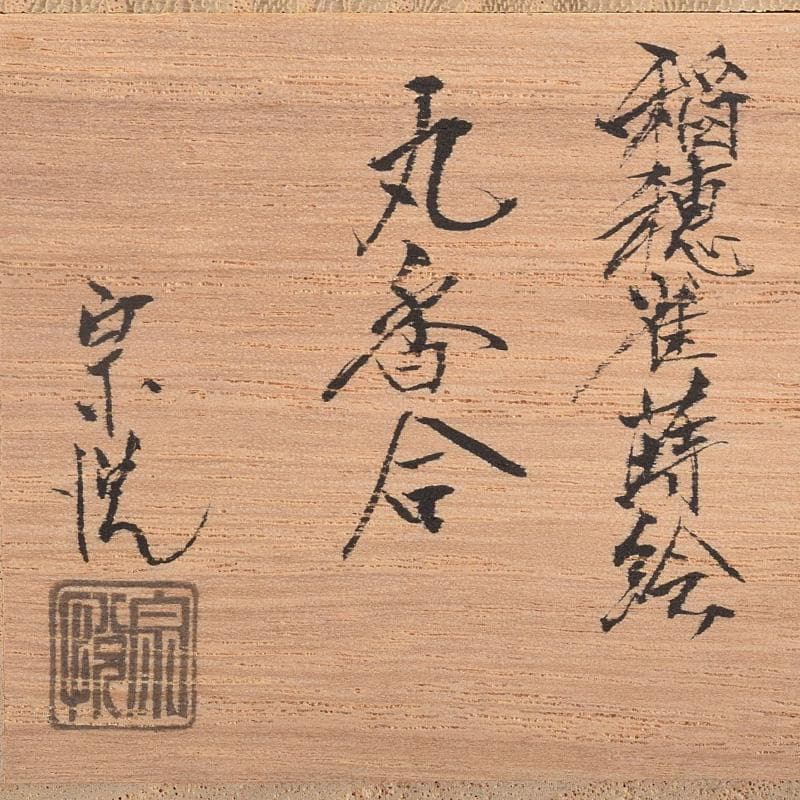 稲穂雀蒔絵
丸香合
宗悦
宗悦